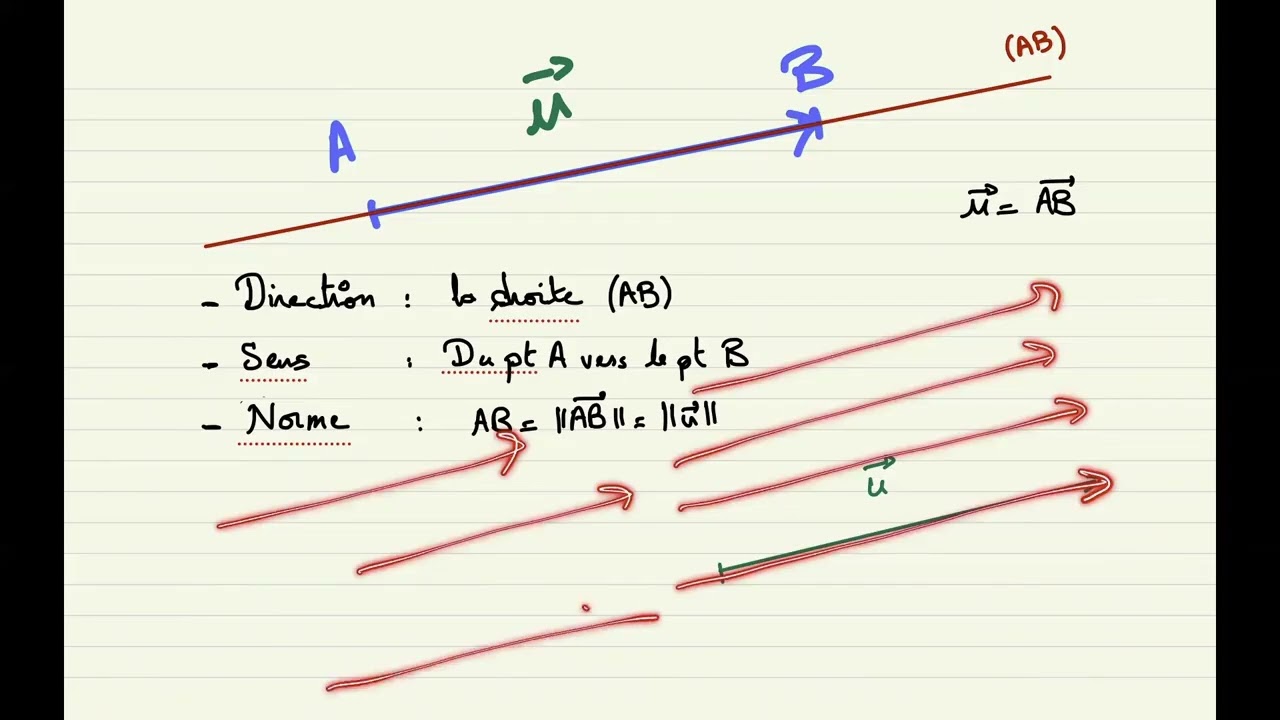 (AB)
B
u⃗
A
u⃗ = A͞B⃗
- Direction : la droite (AB)
- Sens : Du pt A vers le pt B
- Norme : AB = ||A͞B⃗|| = ||u⃗||
u⃗